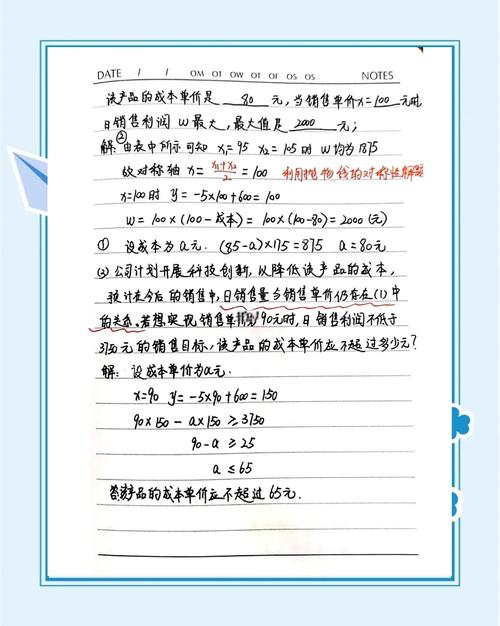 DATE / / OM OT OW OT OF OS OS NOTES
该产品的成本单价是 80 元,当销售单价x=100 元时
日销售利润 W最大,最大值是 2000 元;
解:② 由表中所示可知 x₁=95 x₂=105时 W均为1875
故对称轴 x= (x₁+x₂)/2 =100 利用抛物线的对称性解题
x=100时 y=-5×100+600=100
W=100×(100-成本)=100×(100-80)=2000(元)
① 设成本为a元. (85-a)×175=875 a=80元
(2)公司计划开展科技创新,以降低该产品的成本,
预计在今后的销售中,日销售量与销售单价仍存在(1)中
的关系.若想实现销售单价为90元时,日销售利润不低于
3750元的销售目标,该产品的成本单价应不超过多少元?
解:设成本单价为a元.
x=90 y=-5×90+600=150
90×150-a×150≥3750
90-a≥25
a≤65
答该产品的成本单价应不超过65元.